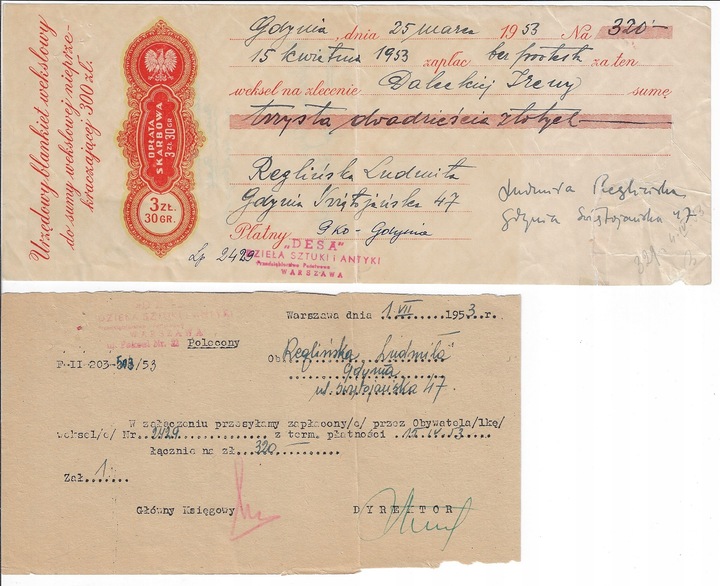 Urzędowy blankiet wekslowy
do sumy wekslowej nieprze-
kraczającej 300 zł.
OPŁATA
SKARBOWA
3 ZŁ 30 GR
3 ZŁ.
30 GR.
Gdynia, dnia 25 marca 1953 Na 320-
15 kwietnia 1953 zapłacę bez protestu za ten
weksel na zlecenie Daleckiej Ireny sumę
trzysta dwadzieścia złotych
Reglińska Ludmiła
Gdynia Świętojańska 47
Płatny PKO-Gdynia
Lp 2429
„DESA"
DZIEŁA SZTUKI I ANTYKI
Przedsiębiorstwo Państwowe
WARSZAWA
Ludmiła Reglińska
Gdynia Świętojańska 47
DZIEŁA SZTUKI I ANTYKI
WARSZAWA
Warszawa dnia 1.VII 1953.r.
Polecony
F-II-203- /53
Ob. Reglińska Ludmiła
Gdynia
ul. Świętojańska 47.
W załączeniu przesyłamy zapłacony/e/ przez Obywatela/lkę/
weksel/e/ Nr. 2429 z term. płatności 15 IV 53
łącznie na zł. 320
Zał 1
Główny Księgowy
DYREKTOR